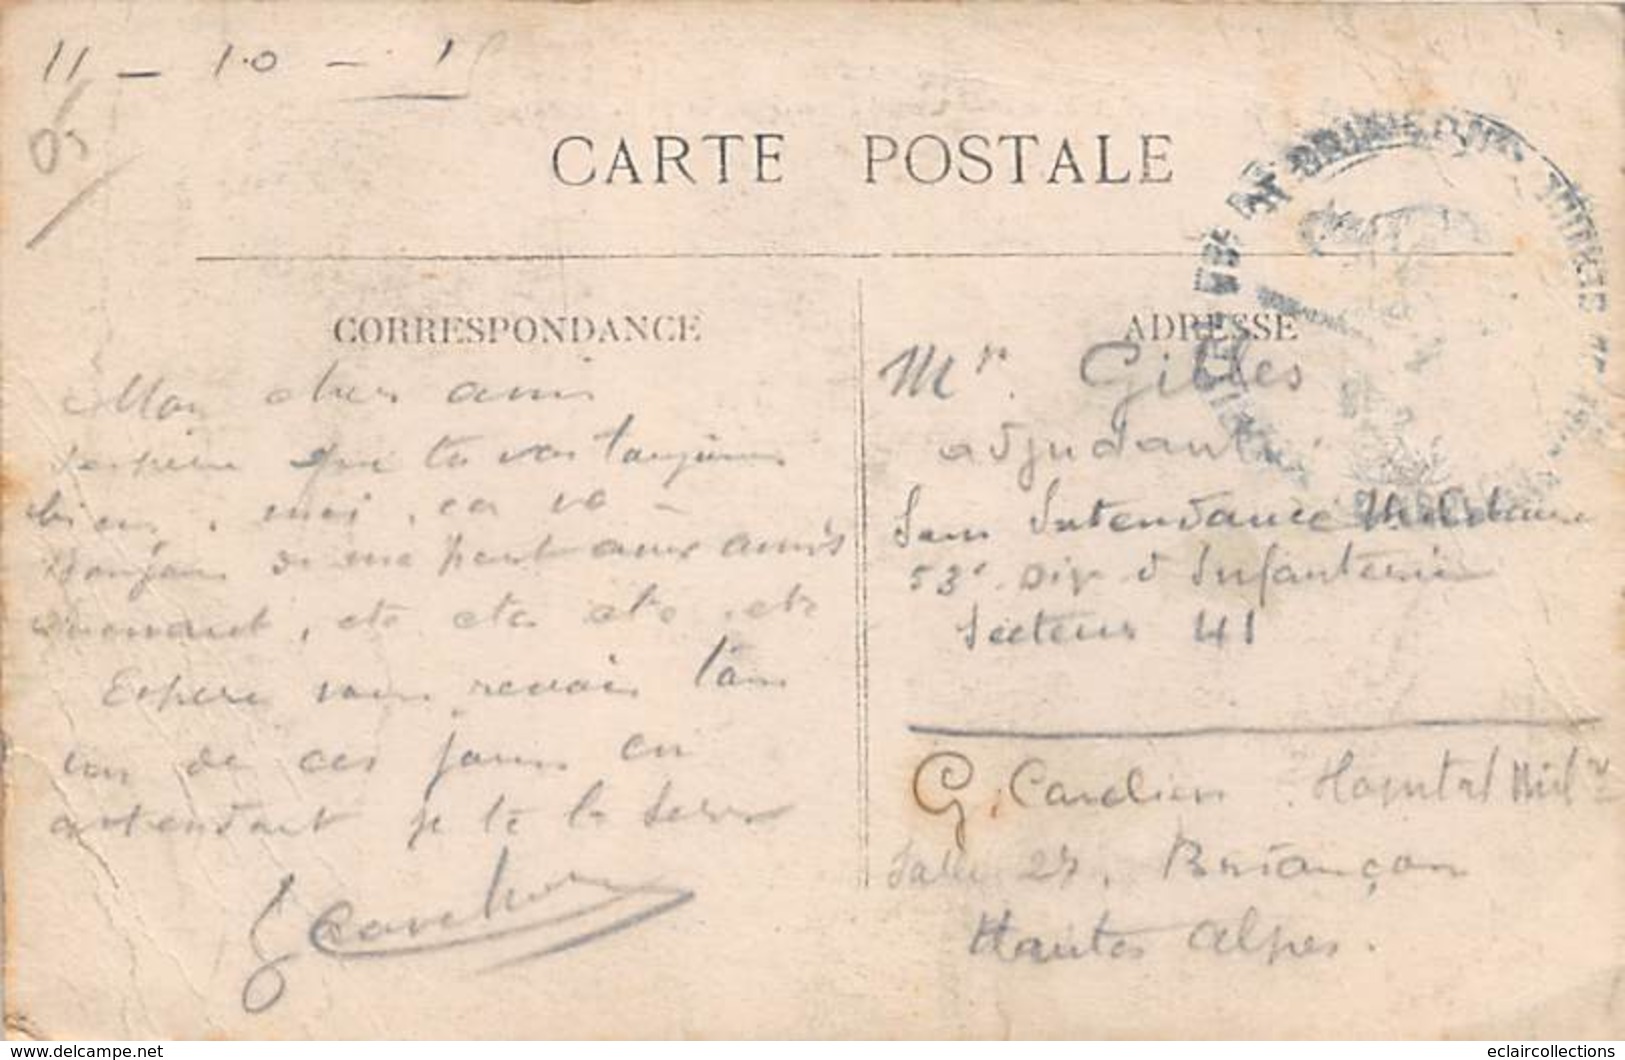 11 - 10 - 1
05
CARTE POSTALE
CORRESPONDANCE
ADRESSE
Mon cher ami
J'espère que tu vas toujours
bien, moi, ça va -
Bonjour de ma part aux amis
etc etc etc, etc
Espère vous revoir l'un
de ces jours en
attendant je te la serre
Mr. Gilles
adjudant
Sous Intendance Militaire
53e Div d'Infanterie
Secteur 41
G. Hopital Milre
Salle 27, Briançon
Hautes Alpes.
www.delcampe.net
eclaircollections